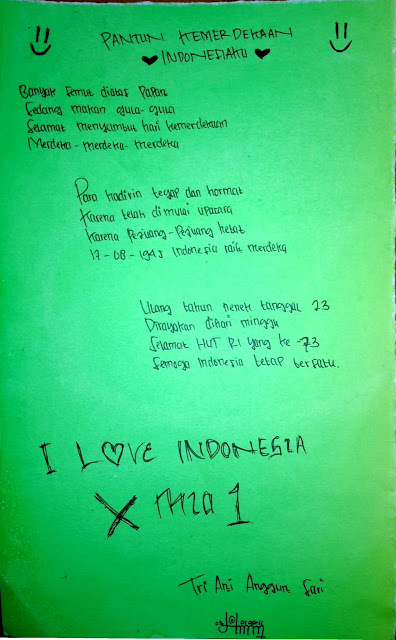 PANTUN KEMERDEKAAN
INDONESIAKU
Banyak semut diatas papan
Sedang makan gula-gula
Selamat menyambut hari kemerdekaan
Merdeka-merdeka-merdeka
Para hadirin tegap dan hormat
Karena telah di mulai upacara
Karena Pejuang-Pejuang hebat
17-08-1945 Indonesia raih merdeka
Ulang tahun nenek tanggal 23
Dirayakan dihari minggu
Selamat HUT RI yang ke-73
Semoga Indonesia tetap bersatu.
I LOVE INDONESIA
X 1
Tri Ani Anggun Sari